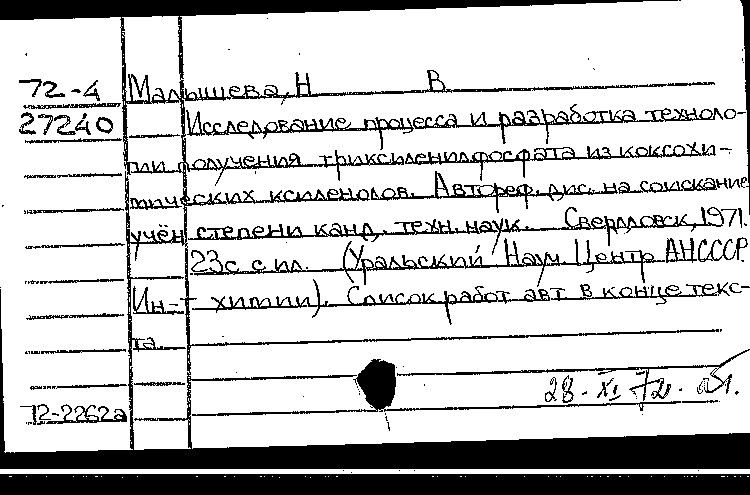 72-4 Малышева, Н В
27240 Исследование процесса и разработка техноло-
гии получения триксиленилфосфата из коксохи-
мических ксиленолов. Автореф. дис. на соискание
учён степени канд. техн. наук. Свердловск, 1971.
23с с ил. (Уральский Науч. Центр АНСССР.
Ин-т химии). Список работ авт в конце текс-
та.
28-XI 72.
72-2262а